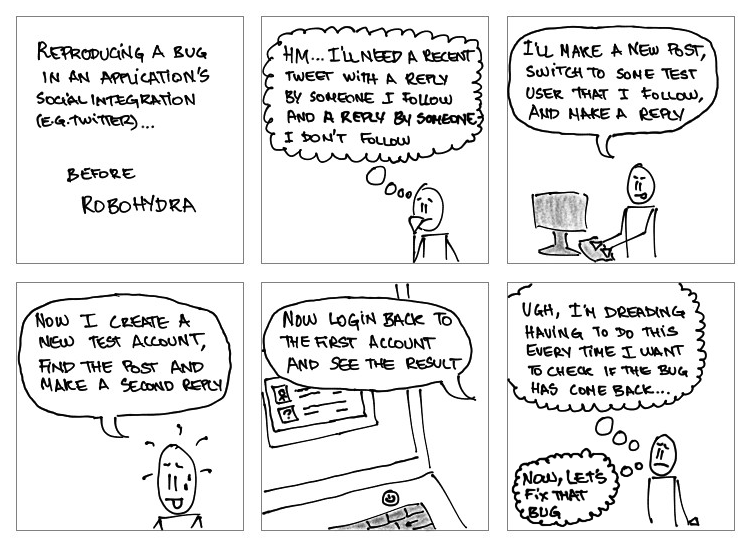 REPRODUCING A BUG
IN AN APPLICATION'S
SOCIAL INTEGRATION
(E.G. TWITTER)...
BEFORE
ROBOHYDRA
HM... I'LL NEED A RECENT
TWEET WITH A REPLY
BY SOMEONE I FOLLOW
AND A REPLY BY SOMEONE
I DON'T FOLLOW
I'LL MAKE A NEW POST,
SWITCH TO SOME TEST
USER THAT I FOLLOW,
AND MAKE A REPLY
NOW I CREATE A
NEW TEST ACCOUNT,
FIND THE POST AND
MAKE A SECOND REPLY
NOW LOGIN BACK TO
THE FIRST ACCOUNT
AND SEE THE RESULT
?
UGH, I'M DREADING
HAVING TO DO THIS
EVERY TIME I WANT
TO CHECK IF THE BUG
HAS COME BACK...
NOW, LET'S
FIX THAT
BUG